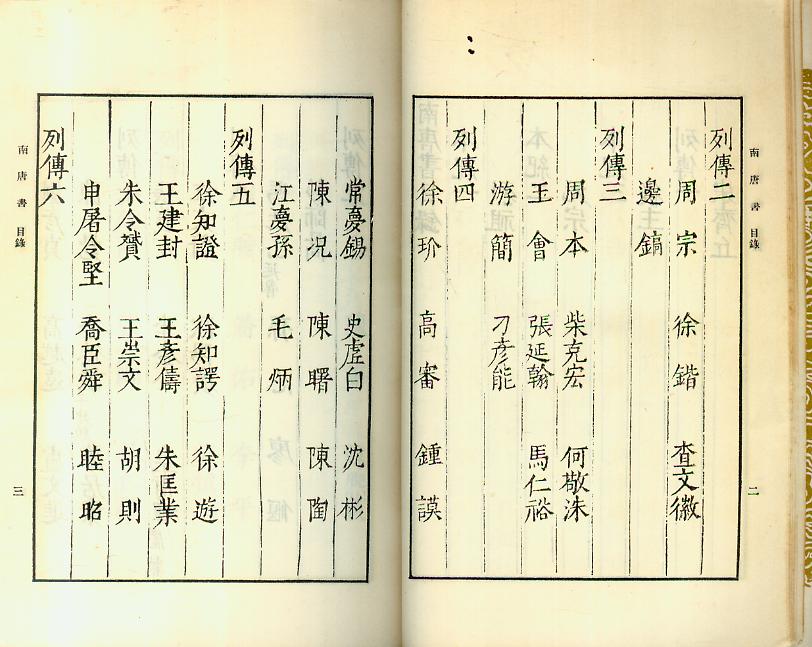 南唐書 目錄
二
列傳二
周宗 徐鍇 查文徽
邊鎬
列傳三
周本 柴克宏 何敬洙
王會 張延翰 馬仁裕
游簡 刁彥能
列傳四
徐玠 高審 鍾謨
常夢錫 史虛白 沈彬
陳況 陳曙 陳陶
江夢孫 毛炳
列傳五
徐知證 徐知諤 徐遊
王建封 王彥儔 朱匡業
朱令贇 王崇文 胡則
申屠令堅 喬臣舜 睦昭
列傳六
南唐書 目錄
三